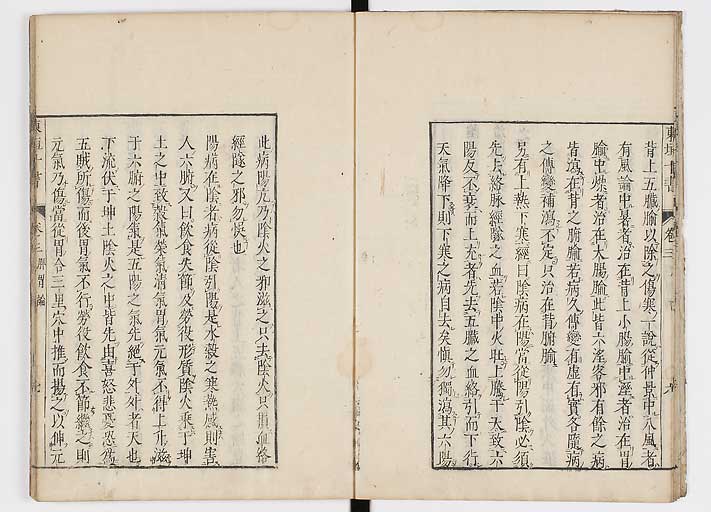 背上五臟腧以除之傷寒一說從仲景中八風者
有風論中暑者治在背上小腸腧中濕者治在胃
腧中燥者治在大腸腧此皆六淫客邪有餘之病
皆瀉在背之腑腧若病久傳變有虛有實各隨病
之傳變補瀉不定只治在背腑腧
另有上熱下寒經曰陰病在陽當從陽引陰必須
先去絡脉經隧之血若陰中火旺上騰于天致六
陽反不衰而上充者先去五臟之血絡引而下行
天氣降下則下寒之病自去矣慎勿獨瀉其六陽
東垣十書
卷三
此病陽亢乃陰火之邪滋之只去陰火只損血絡
經隧之邪勿悞也
陽病在陰者病從陰引陽是水穀之寒熱感則害
人六腑又曰飲食失節及勞役形質陰火乘于坤
土之中致穀氣榮氣清氣胃氣元氣不得上升滋
于六腑之陽氣是五陽之氣先絕于外外者天也
下流伏于坤土陰火之中皆先由喜怒悲憂恐爲
五賊所傷而後胃氣不行勞役飲食不節繼之則
元氣乃傷當從胃合三里穴中推而揚之以伸元
東垣十書
卷三 脾胃論